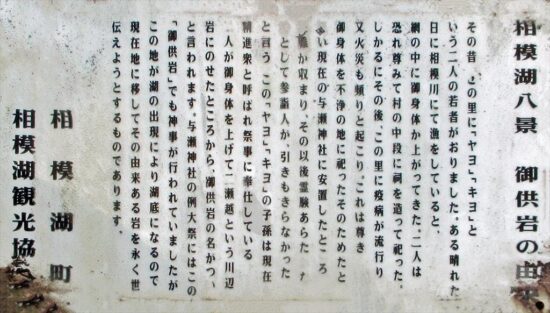 相模湖八景 御供岩の由
その昔、この里に「ヤヨ」「キヨ」と
いう二人の若者がおりました。ある晴れた
日に相模川にて漁をしていると、
網の中に御身体が上がってきた。二人は
恐れ尊みて村の中段に祠を造って祀った。
しかるにその後、この里に疫病が流行り
又火災も頻りと起こり、これは尊き
御身体を不浄の地に祀ったそのためたと
い現在の与瀬神社に安置したところ
が収まり、その以後霊験あらた
として参詣人が、引きもきらなかった
と言う この「ヤヨ」「キヨ」の子孫は現在
精進衆と呼ばれ祭事に奉仕している
人が御身体を上げて二瀬越という川辺
岩にのせたところから、御供岩の名がつい
と言われます。与瀬神社の例大祭にはこの
「御供岩」でも神事が行われていましたが
この地が湖の出現により湖底となるので
現在地に移してその由来ある岩を永く世
伝えようとするものであります。
相模湖町
相模湖観光協